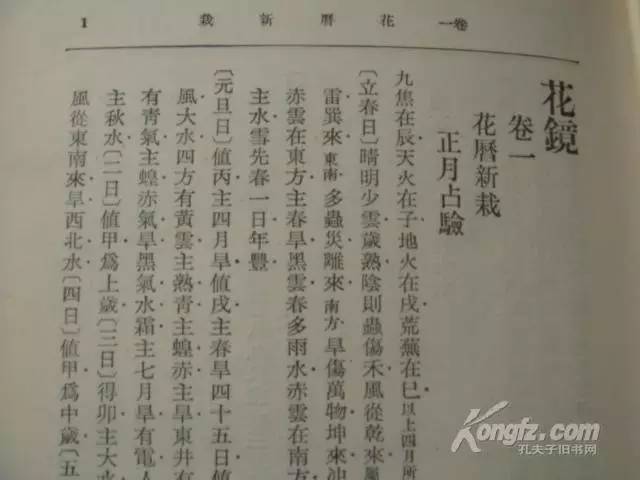 卷一 花曆新栽 1
花鏡
卷一
花曆新栽
正月占驗
九焦在辰天火在子地火在戌荒蕪在巳以上四月所
〔立春日〕晴明少雲歲熟陰則蟲傷禾風從乾來
雷巽來東南多蟲災離來南方旱傷萬物坤來
赤雲在東方主春旱黑雲春多雨水赤雲在南方
主水雪先春一日年豐
〔元旦日〕值丙主四月旱值戌主春旱四十五日值
風大水四方有黃雲主熟青主蝗赤主旱東井有
有青氣主蝗赤氣旱黑氣水霜主七月旱有電人
主秋水〔二日〕值甲爲上歲〔三日〕得卯主大水
風從東南來旱西北水〔四日〕值甲爲中歲〔五
Kongfz.com
孔夫子旧书网